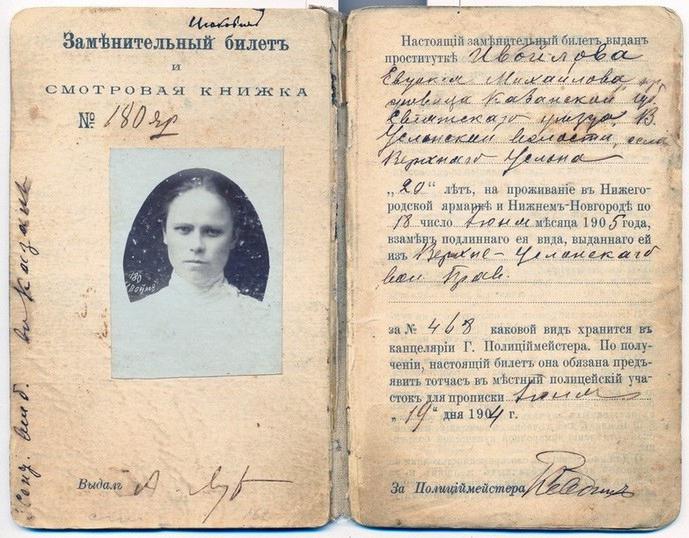 Замѣнительный билетъ
и
СМОТРОВАЯ КНИЖКА
№ 180 яр
180
Выдалъ
Настоящій замѣнительный билетъ выданъ
проституткѣ Ивойлова
Евдокія Михайлова
Казанской губ.
Свіяжскаго уѣзда, В.
Услонской волости, села
Верхняго Услона
„20“ лѣтъ, на проживаніе въ Нижего-
родской ярмаркѣ и Нижнемъ-Новгородѣ по
18 число іюня мѣсяца 1905 года,
взамѣнъ подлиннаго ея вида, выданнаго ей
изъ Верхне-Услонскаго
вол. Прав.
за № 468 каковой видъ хранится въ
канцеляріи Г. Полиційместера. По полу-
ченіи, настоящій билетъ она обязана предъ-
явить тотчасъ въ мѣстный полицейскій уча-
стокъ для прописки іюня
„19“ дня 1904 г.
За Полиціймейстера